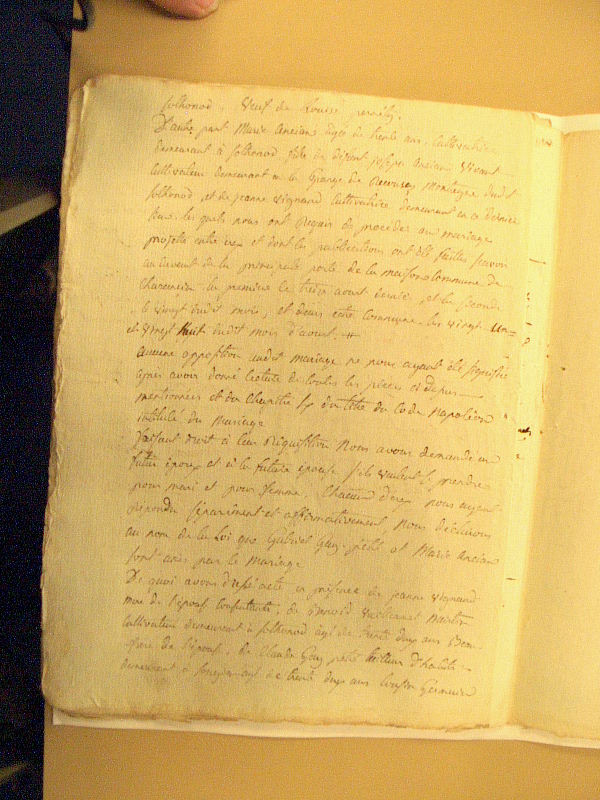 Solhonod, Veuf de Louise
D'autre part Marie Ancian agée de trente ans, Cultivatrice
demeurant à Solhonod fille de défunt joseph Ancian Vivant
Cultivateur demeurant en la Grange de Montagne dudit
Solhonod et de jeanne vignand Cultivatrice demeurant en ce dernier
lieu. les quels nous ont Requis de proceder au mariage
projetté entre eux et dont les publications ont été faittes sçavoir
au devant de la principale porte de la maison Commune de
la premiere le treize aoust et la seconde
le vingt dudit mois, et deux cette Commune les vingt un
et vingt huit dudit mois d'aoust.
aucune opposition audit mariage ne nous ayant été signifiée
après avoir donné lecture de toutes les pièces ci depus
mentionnées et du Chapitre du titre du Code Napoléon
intitulé du Mariage
faisant droit à leur Réquisition Nous avons demandé au
futur époux et à la future épouse s'ils veulent se prendre
pour mari et pour femme, Chacun d'eux nous ayant
répondu séparément et affirmativement, Nous déclarons
au nom de la Loi que Gabriel Guy et Marie Ancian
sont unis par le Mariage
De quoi avons dressé acte en présence de jeanne vignand
mère de l'épouse consentante, de Benoid Martin
Cultivateur demeurant à Solhonod agé de trente deux ans
frère de l'épouse, de Claude Guy tailleur d'habits
demeurant à agé de trente deux ans Cousin Germain